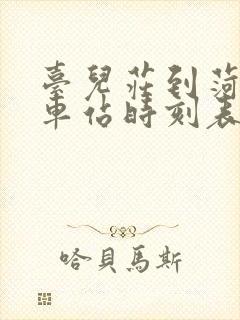 臺兒莊到菏
車佔時刻表
哈貝馬斯